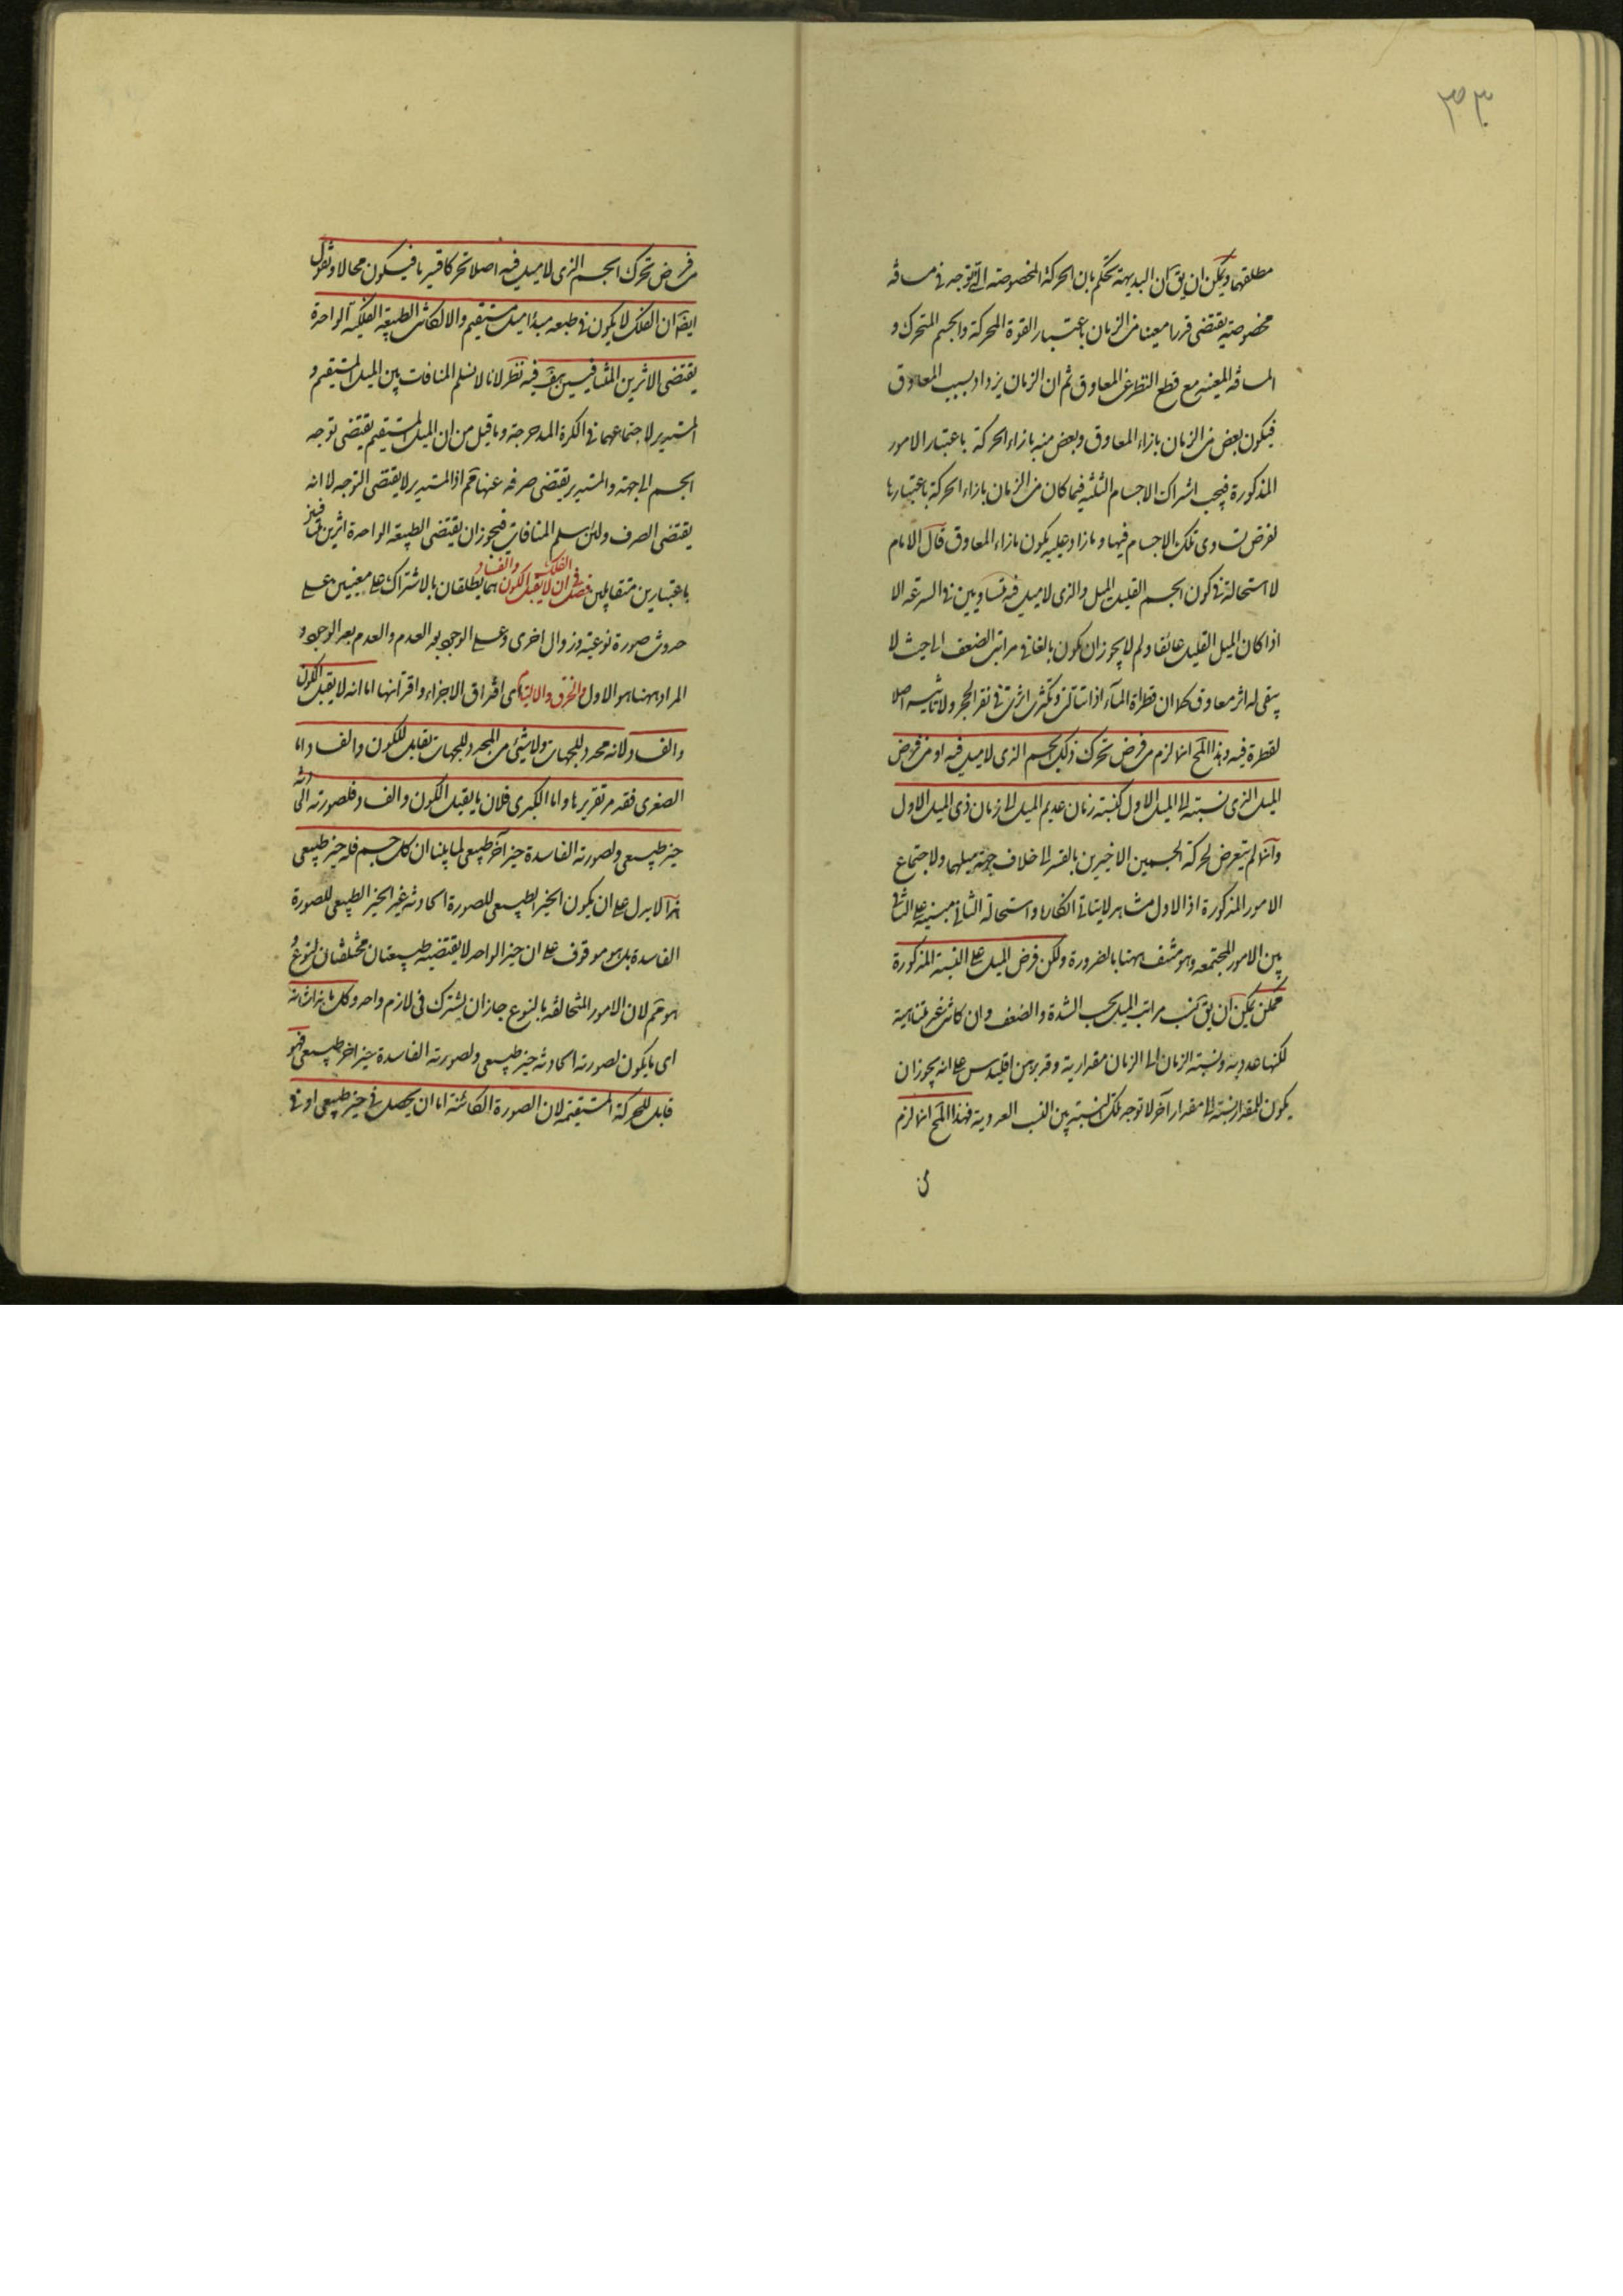 ٣٣
مطلقهما ويمكن ان يق ان البديهة تحكم بان الحركة المخصوصة التى توجد فى مسافة
مخصوصة يقتضى قدرا معينا من الزمان باعتبار القوة المحركة والجسم المتحرك و
المسافة المعينة مع قطع النظر عن المعاوق ثم ان الزمان يزداد بسبب المعاوق
فيكون بعض من الزمان بازاء المعاوق وبعض منه بازاء الحركة باعتبار الامور
المذكورة فيجب اشتراك الاجسام الثلثة فيما كان من الزمان بازاء الحركة باعتبارها
لفرض تساوى تلك الاجسام فيها وما زاد عليه يكون بازاء المعاوق قال الامام
لا استحالة فى كون الجسم القليل الميل والذى لا ميل فيه متساويين فى السرعة الا
اذا كان الميل القليل عائقا ولم لا يجوز ان يكون بالغا فى مراتب الضعف الى حيث لا
يبقى له اثر معاوق كما ان قطرة المآء اذا تتالت وتكثرت اثرت فى نقر الحجر ولا تاثير اصلا
لقطرة فيه وهذا المح انما لزم من فرض تحرك ذلك الجسم الذى لا ميل فيه او من فرض
الميل الذى نسبته الى الميل الاول كنسبة زمان عديم الميل الى زمان ذى الميل الاول
وانما لم يتعرض لحركة الجسمين الاخيرين بالقسر الى خلاف جهة ميلهما ولاجتماع
الامور المذكورة اذ الاول مشاهد لا يتاتى انكارها واستحالة الثانى مبنية على التنافى
بين الامور المجتمعه وهو منتف ههنا بالضرورة ولكن فرض الميل على النسبة المذكورة
ممكن يمكن ان يق نسب مراتب الميل بحسب الشدة والضعف وان كانت غير متناهية
لكنها عددية ونسبة الزمان الى الزمان مقدارية وقد برهن اقليدس على انه يجوز ان
يكون للمقدار نسبة الى مقدار آخر لا توجد تلك النسبة بين النسب العددية فهذا المح انما لزم
من
من فرض تحرك الجسم الذى لا ميل فيه اصلا تحركا قسريا فيكون محالا ونقول
ايضا ان الفلك لا يكون فى طبعه مبدأ ميل مستقيم والا لكانت الطبيعة الفلكية الواحدة
يقتضى الاثرين المتنافيين هف فيه نظر لانا لا نسلم المنافات بين الميل المستقيم و
المستدير لاجتماعهما فى الكرة المدحرجة وما قيل من ان الميل المستقيم يقتضى توجه
الجسم الى جهة والمستدير يقتضى صرفه عنها فمم اذ المستدير لا يقتضى التوجه لا انه
يقتضى الصرف ولئن سلم المنافات فيجوز ان يقتضى الطبيعة الواحدة اثرين متنافيين
باعتبارين متقابلين فصل فى ان الفلك لا يقبل الكون والفساد هما يطلقان بالاشتراك على معنيين على
حدوث صورة نوعية وزوال اخرى وعلى الوجود بعد العدم والعدم بعد الوجود و
المراد ههنا هو الاول والخرق والالتيام اى افتراق الاجزاء واقترانها اما انه لا يقبل الكون
والفساد لانه محدد للجهات ولا شئ من المحدد للجهات بقابل للكون والفساد اما
الصغرى فقد مر تقريرها واما الكبرى فلان ما يقبل الكون والفساد فلصورته الحادثة
حيز طبيعى ولصورته الفاسدة حيز آخر طبيعى لما بينا ان كل جسم فله حيز طبيعى
هذا لا يدل على ان يكون الحيز الطبيعى للصورة الحادثة غير الحيز الطبيعى للصورة
الفاسدة بل هو موقوف على ان حيز الواحد لا يقتضيه طبيعتان مختلفتان بالنوع و
هو مم لان الامور المتخالفة بالنوع جاز ان يشترك فى لازم واحد وكل ما هذا شانه
اى ما يكون لصورته الحادثة حيز طبيعى ولصورته الفاسدة حيز اخر طبيعى فهو
قابل للحركة المستقيمة لان الصورة الكائنة اما ان يحصل فى حيز طبيعى او فى